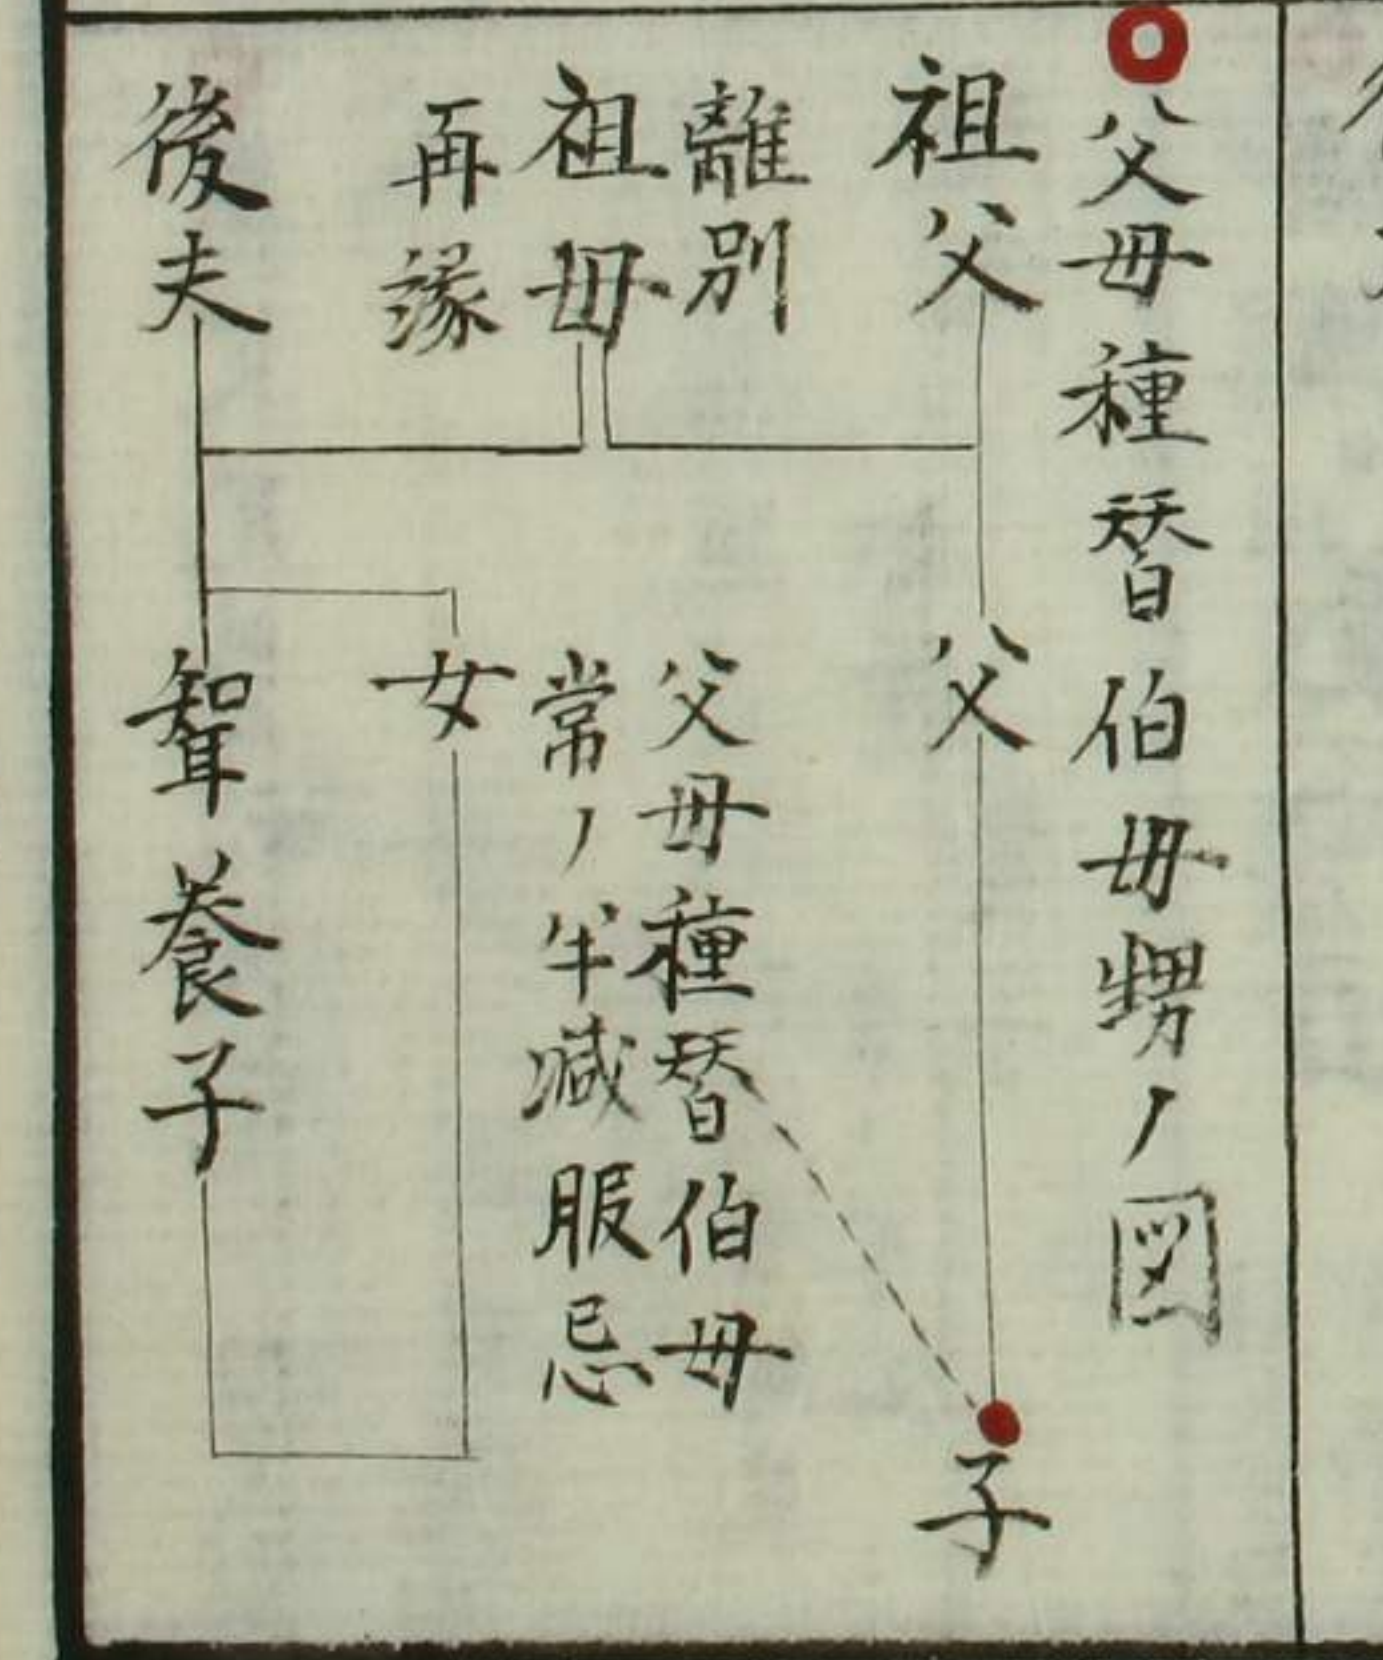 父母種替伯母甥ノ図
祖父
離別
祖母
再縁
後夫
父
父母種替伯母
常ノ半減服忌
女
聟養子
子